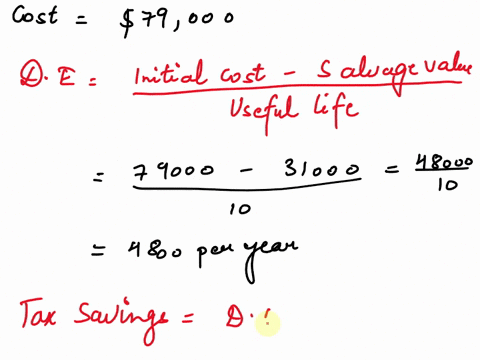 Cost = $79,000
D.E = Initial cost - Salvage value / Useful life
= 79000 - 31000 / 10 = 48000 / 10
= 4800 per year
Tax Savings = D.